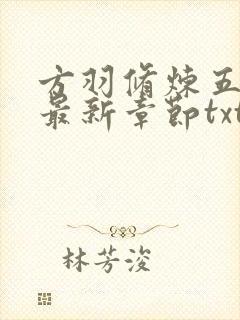 方羽脩炼五
最新章節txt
林芳浚